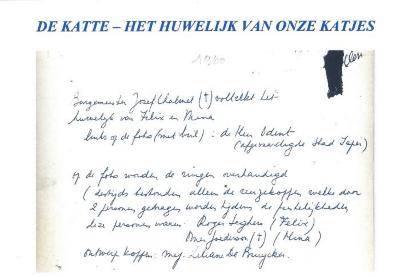 DE KATTE – HET HUWELIJK VAN ONZE KATJES
1960
Burgemeester Josef Chalmet (†) voltrekt het
huwelijk van Felix en Mina
links op de foto (met bril) : de Heer Odent
(afgevaardigde Stad Ieper)
op de foto worden de ringen overhandigd
(destijds bestonden alleen de reuzekoppen welke door
2 personen gedragen worden tijdens de feestelijkheden
deze personen waren : Roger Seghers (Felix)
Omer (†) (Mina)
ontwerp koppen : mej. Liliane De Bruycker.